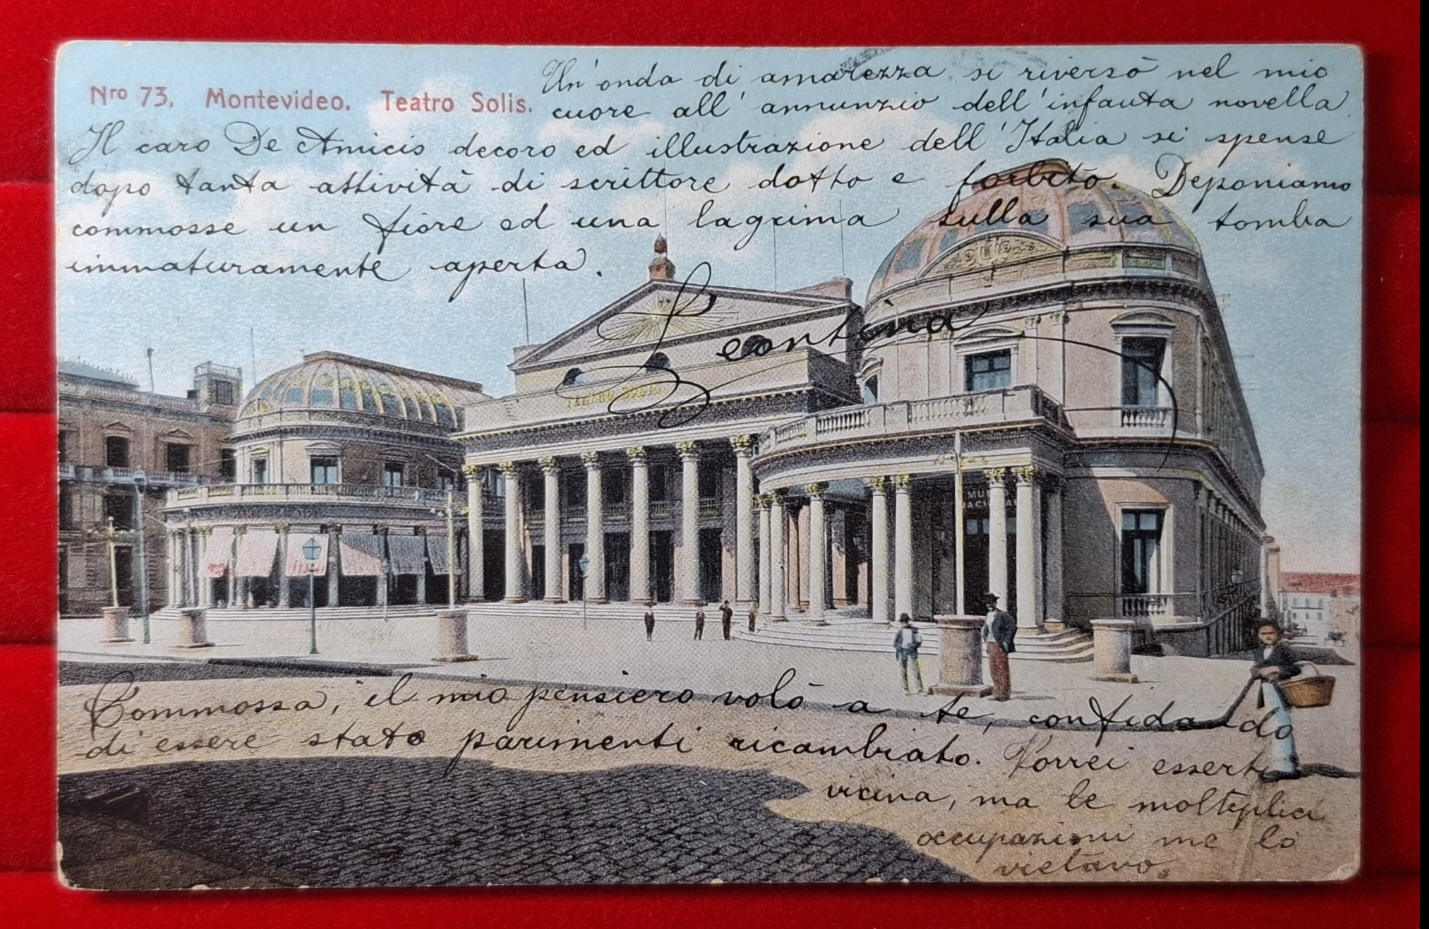 Nro 73. Montevideo. Teatro Solis.
Un'onda di amarezza si riversò nel mio
cuore all'annunzio dell'infausta novella
Il caro De Amicis decoro ed illustrazione dell'Italia si spense
dopo tanta attività di scrittore dotto e forbito. Deponiamo
commosse un fiore ed una lagrima sulla sua tomba
immaturamente aperta.
Leontina
TEATRO SOLIS
MUSEO
NACIONAL
Commossa, il mio pensiero volò a te, confidando
di essere stato parimenti ricambiato. Vorrei esserti
vicina, ma le molteplici
occupazioni me lo
vietano.